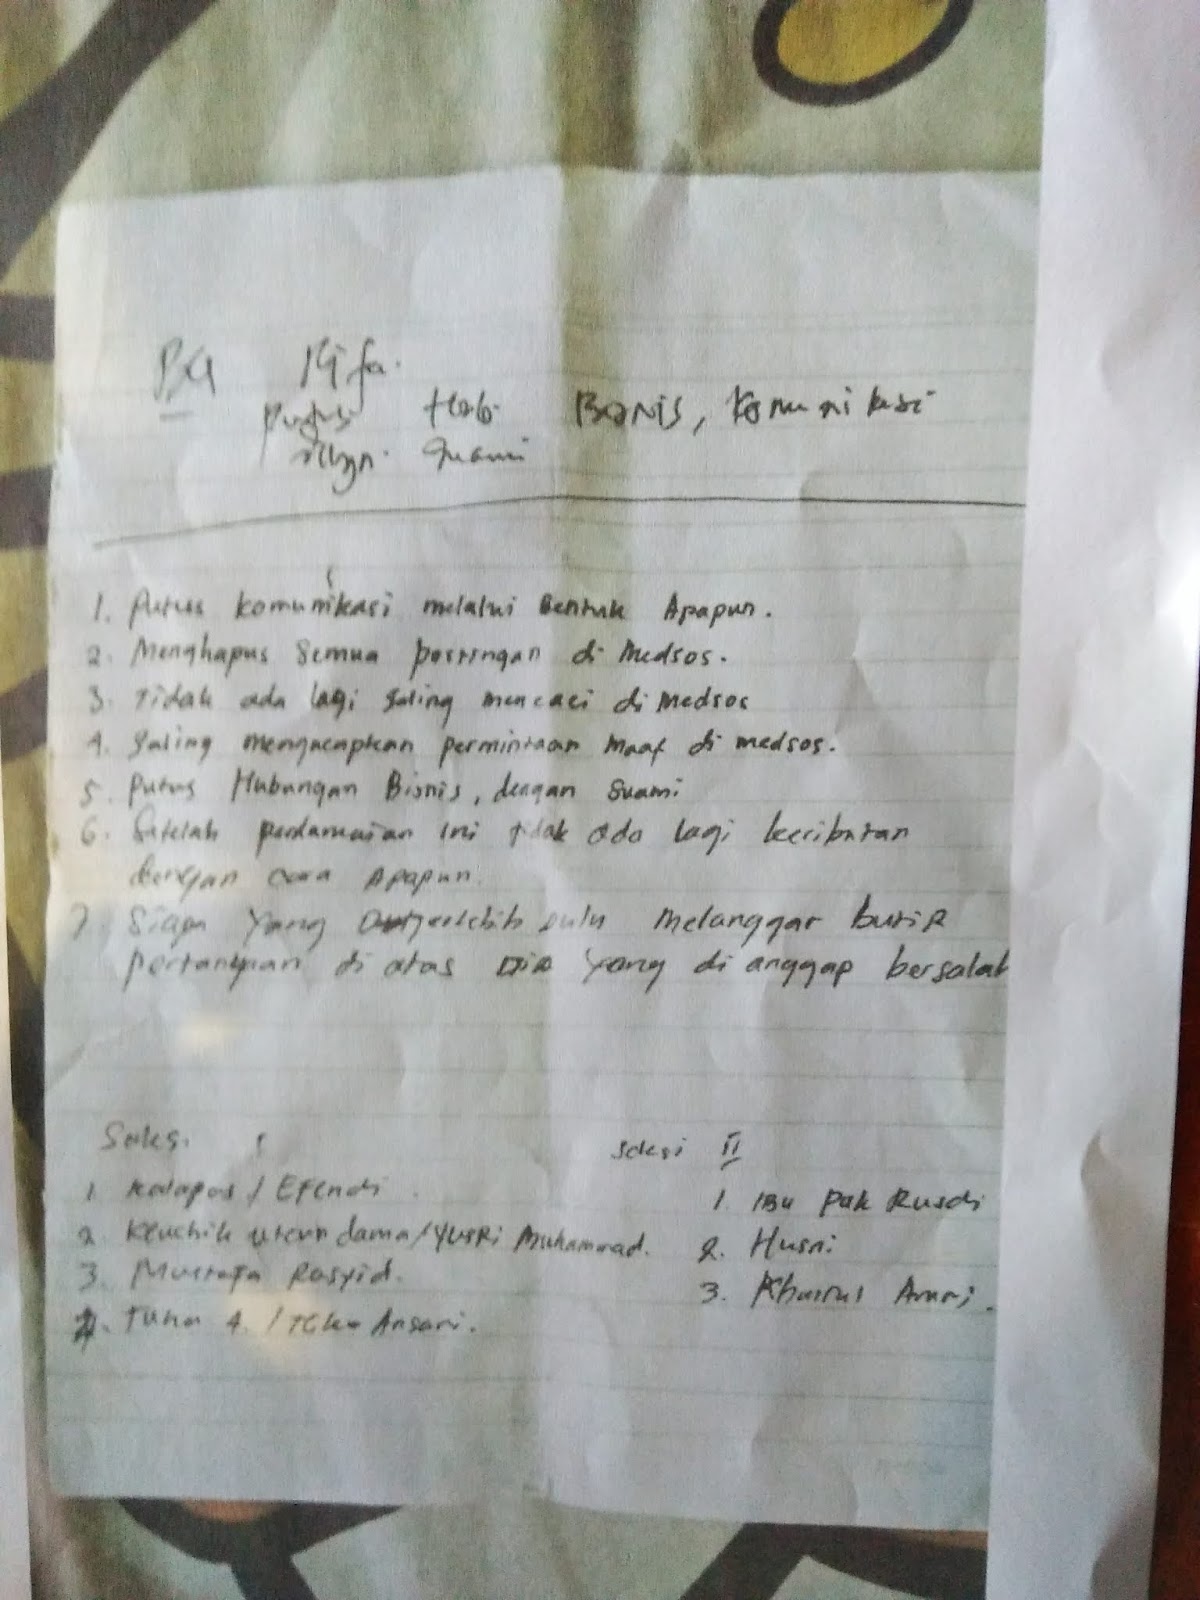 Putus Hub Bisnis, Komunikasi
dgn. Suami
1. Putus komunikasi melalui Bentuk Apapun.
2. Menghapus Semua postingan di Medsos.
3. Tidak ada lagi saling mencaci di Medsos
4. Saling mengucapkan permintaan Maaf di medsos.
5. Putus Hubungan Bisnis, dengan Suami
6. Setelah perdamaian ini tidak ada lagi keributan
dengan cara Apapun.
7. Siapa yang terlebih dulu Melanggar butir
di atas Dia yang di anggap bersalah
Saksi I
Saksi II
1. Kadapos / Efendi
1. Ibu Pak Rusdi
2. Keuchik uteun dama / Yusri Muhammad.
2. Husni
3. Mustafa Rasyid.
3. Khairul Amri.
4. Tuha 4. / Tgk Ansari.